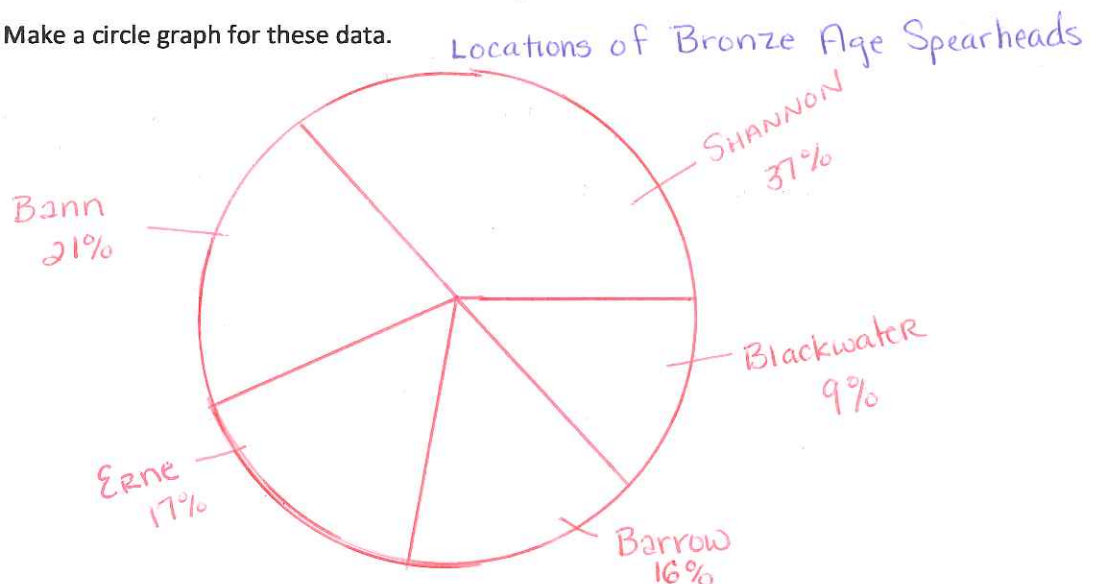 Make a circle graph for these data.
Locations of Bronze Age Spearheads
SHANNON
37%
Bann
21%
Blackwater
9%
Erne
17%
Barrow
16%